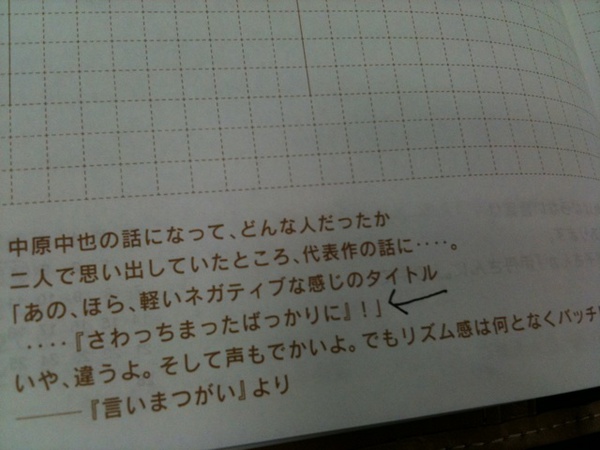 中原中也の話になって、どんな人だったか
二人で思い出していたところ、代表作の話に‥‥。
「あの、ほら、軽いネガティブな感じのタイトル
‥‥『さわっちまったばっかりに』！」
いや、違うよ。そして声もでかいよ。でもリズム感は何となくバッチ
──『言いまつがい』より